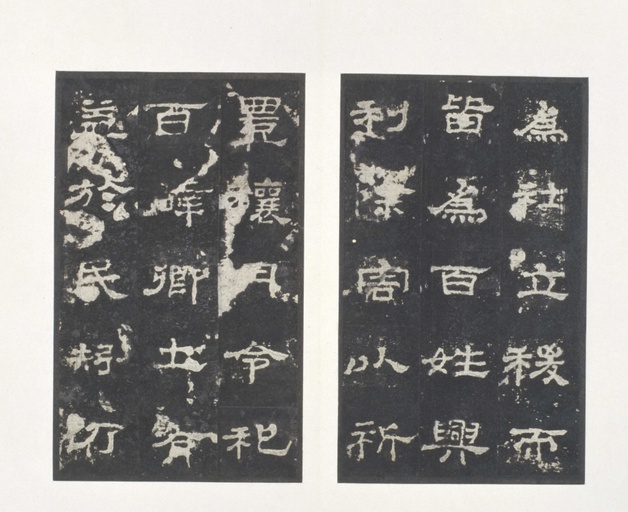 為社立稷而
皆為百姓興
利除害以祈
豐穰月令祀
百辟卿士有
益於民矧